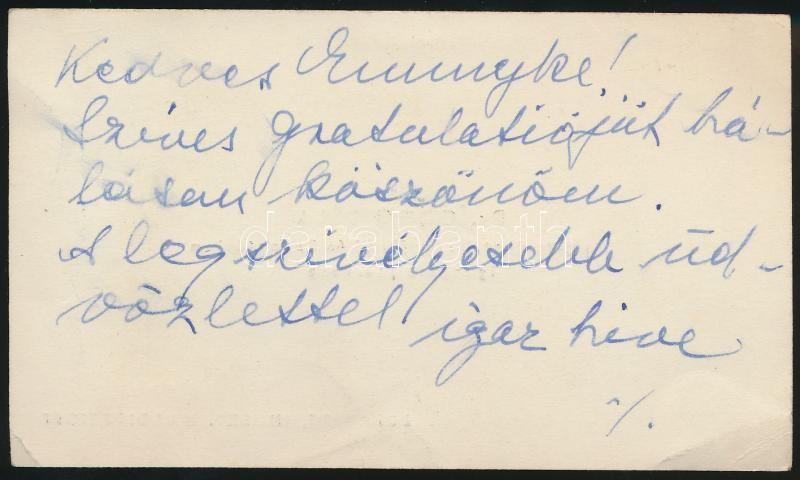 Kedves Emmyke!
Szíves gratulatiójút há-
lásan köszönöm.
A legszivélyesebb üd-
vözlettel igaz hive
./.
darabanth